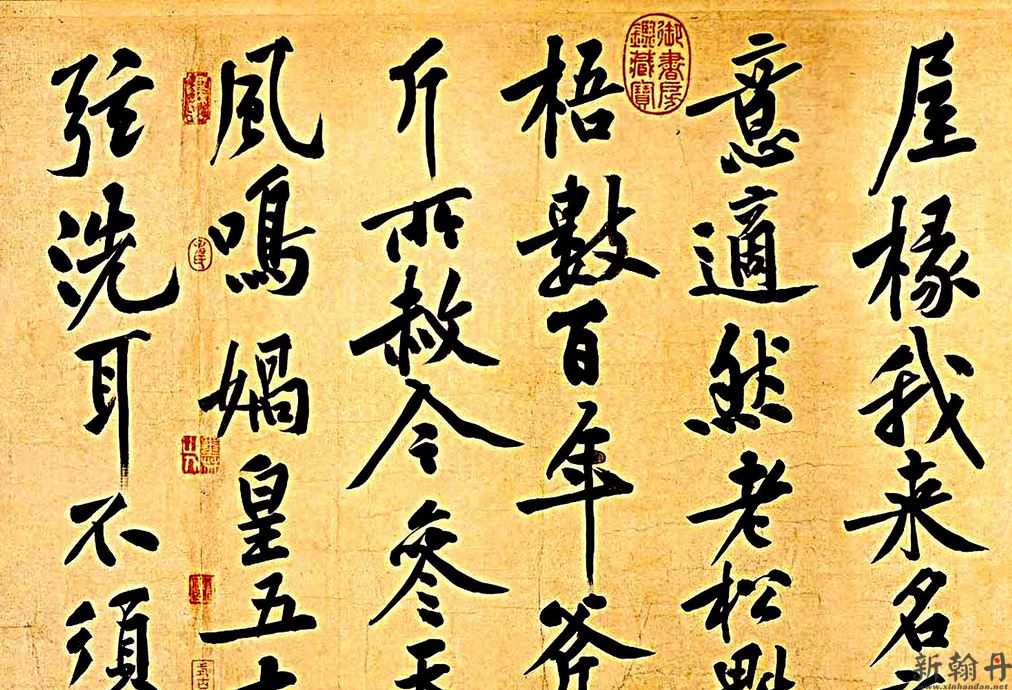 屋椽我来名
意適然老松魁
梧數百年斧
斤所赦今參天
風鳴媧皇五十
弦洗耳不須
御書房鑑藏寶
新翰丹
www.xinhandan.net